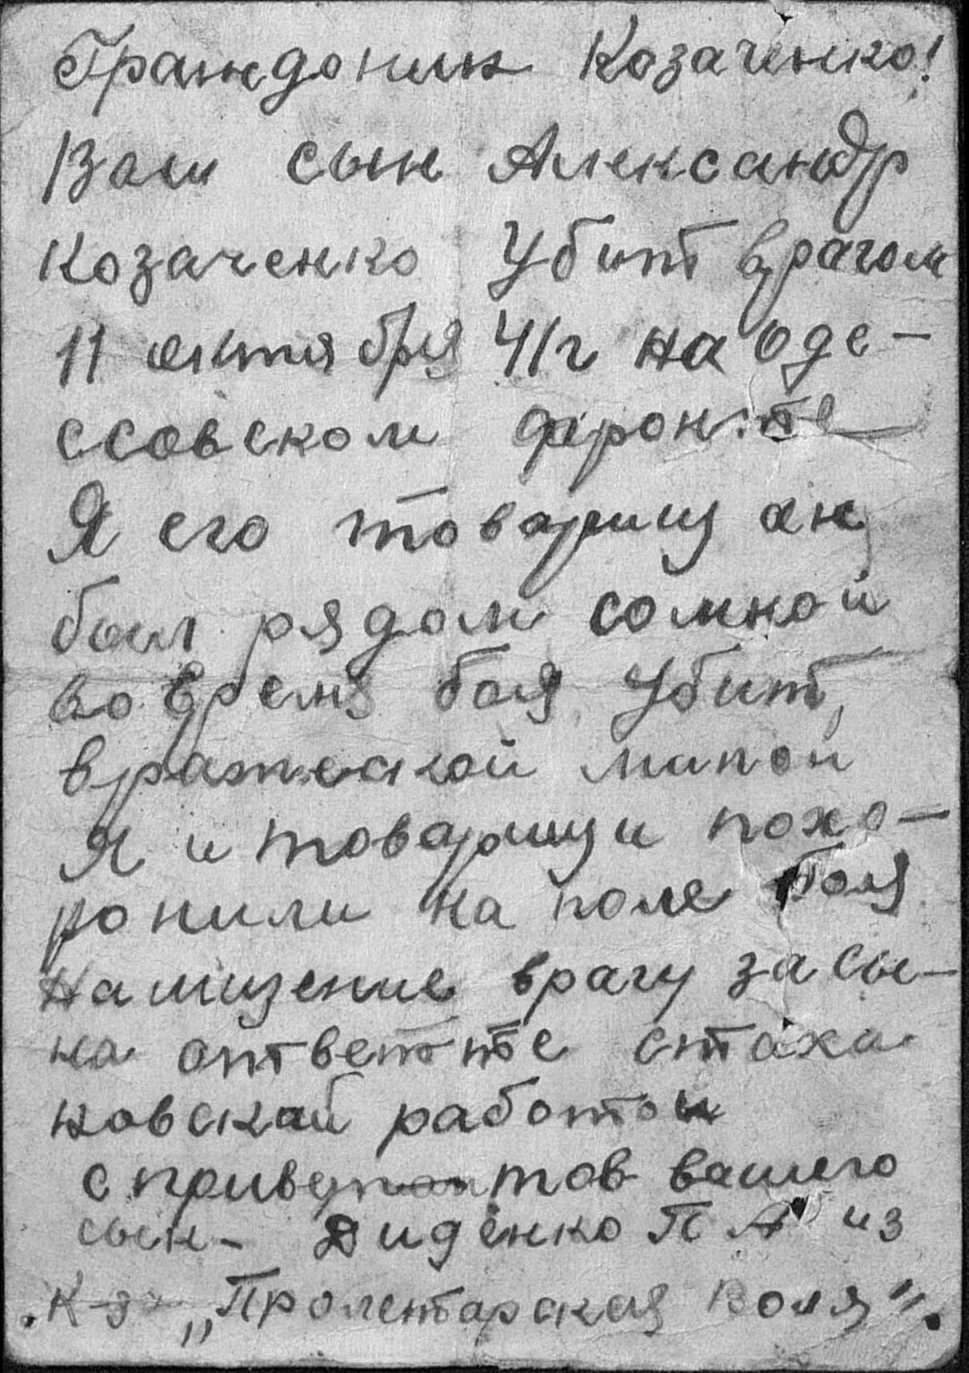 Граждонин Козаченко!
Ваш сын Александр
Козаченко Убит врагом
11 октября 41г на оде-
ссовском фронте
Я его товарищ он
был рядом сомной
во время боя Убит,
вражеской миной
Я и товарищи похо-
ронили на поле боя
На мщение врагу за сы-
на ответте стаха
новской работой
с приветом тов вашего
сын- Диденко П А из
К-з „Пролетарская Воля".